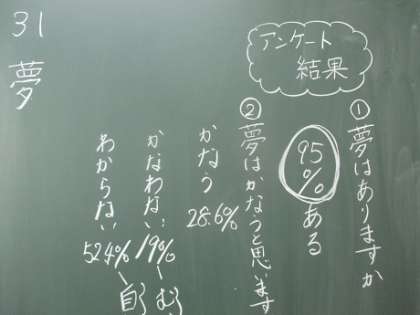 アンケート
結果
①夢はありますか
95%ある
②夢は、かなうと思います
かなう 28.6%
かなわない 19%
わからない 52.4%
31
夢